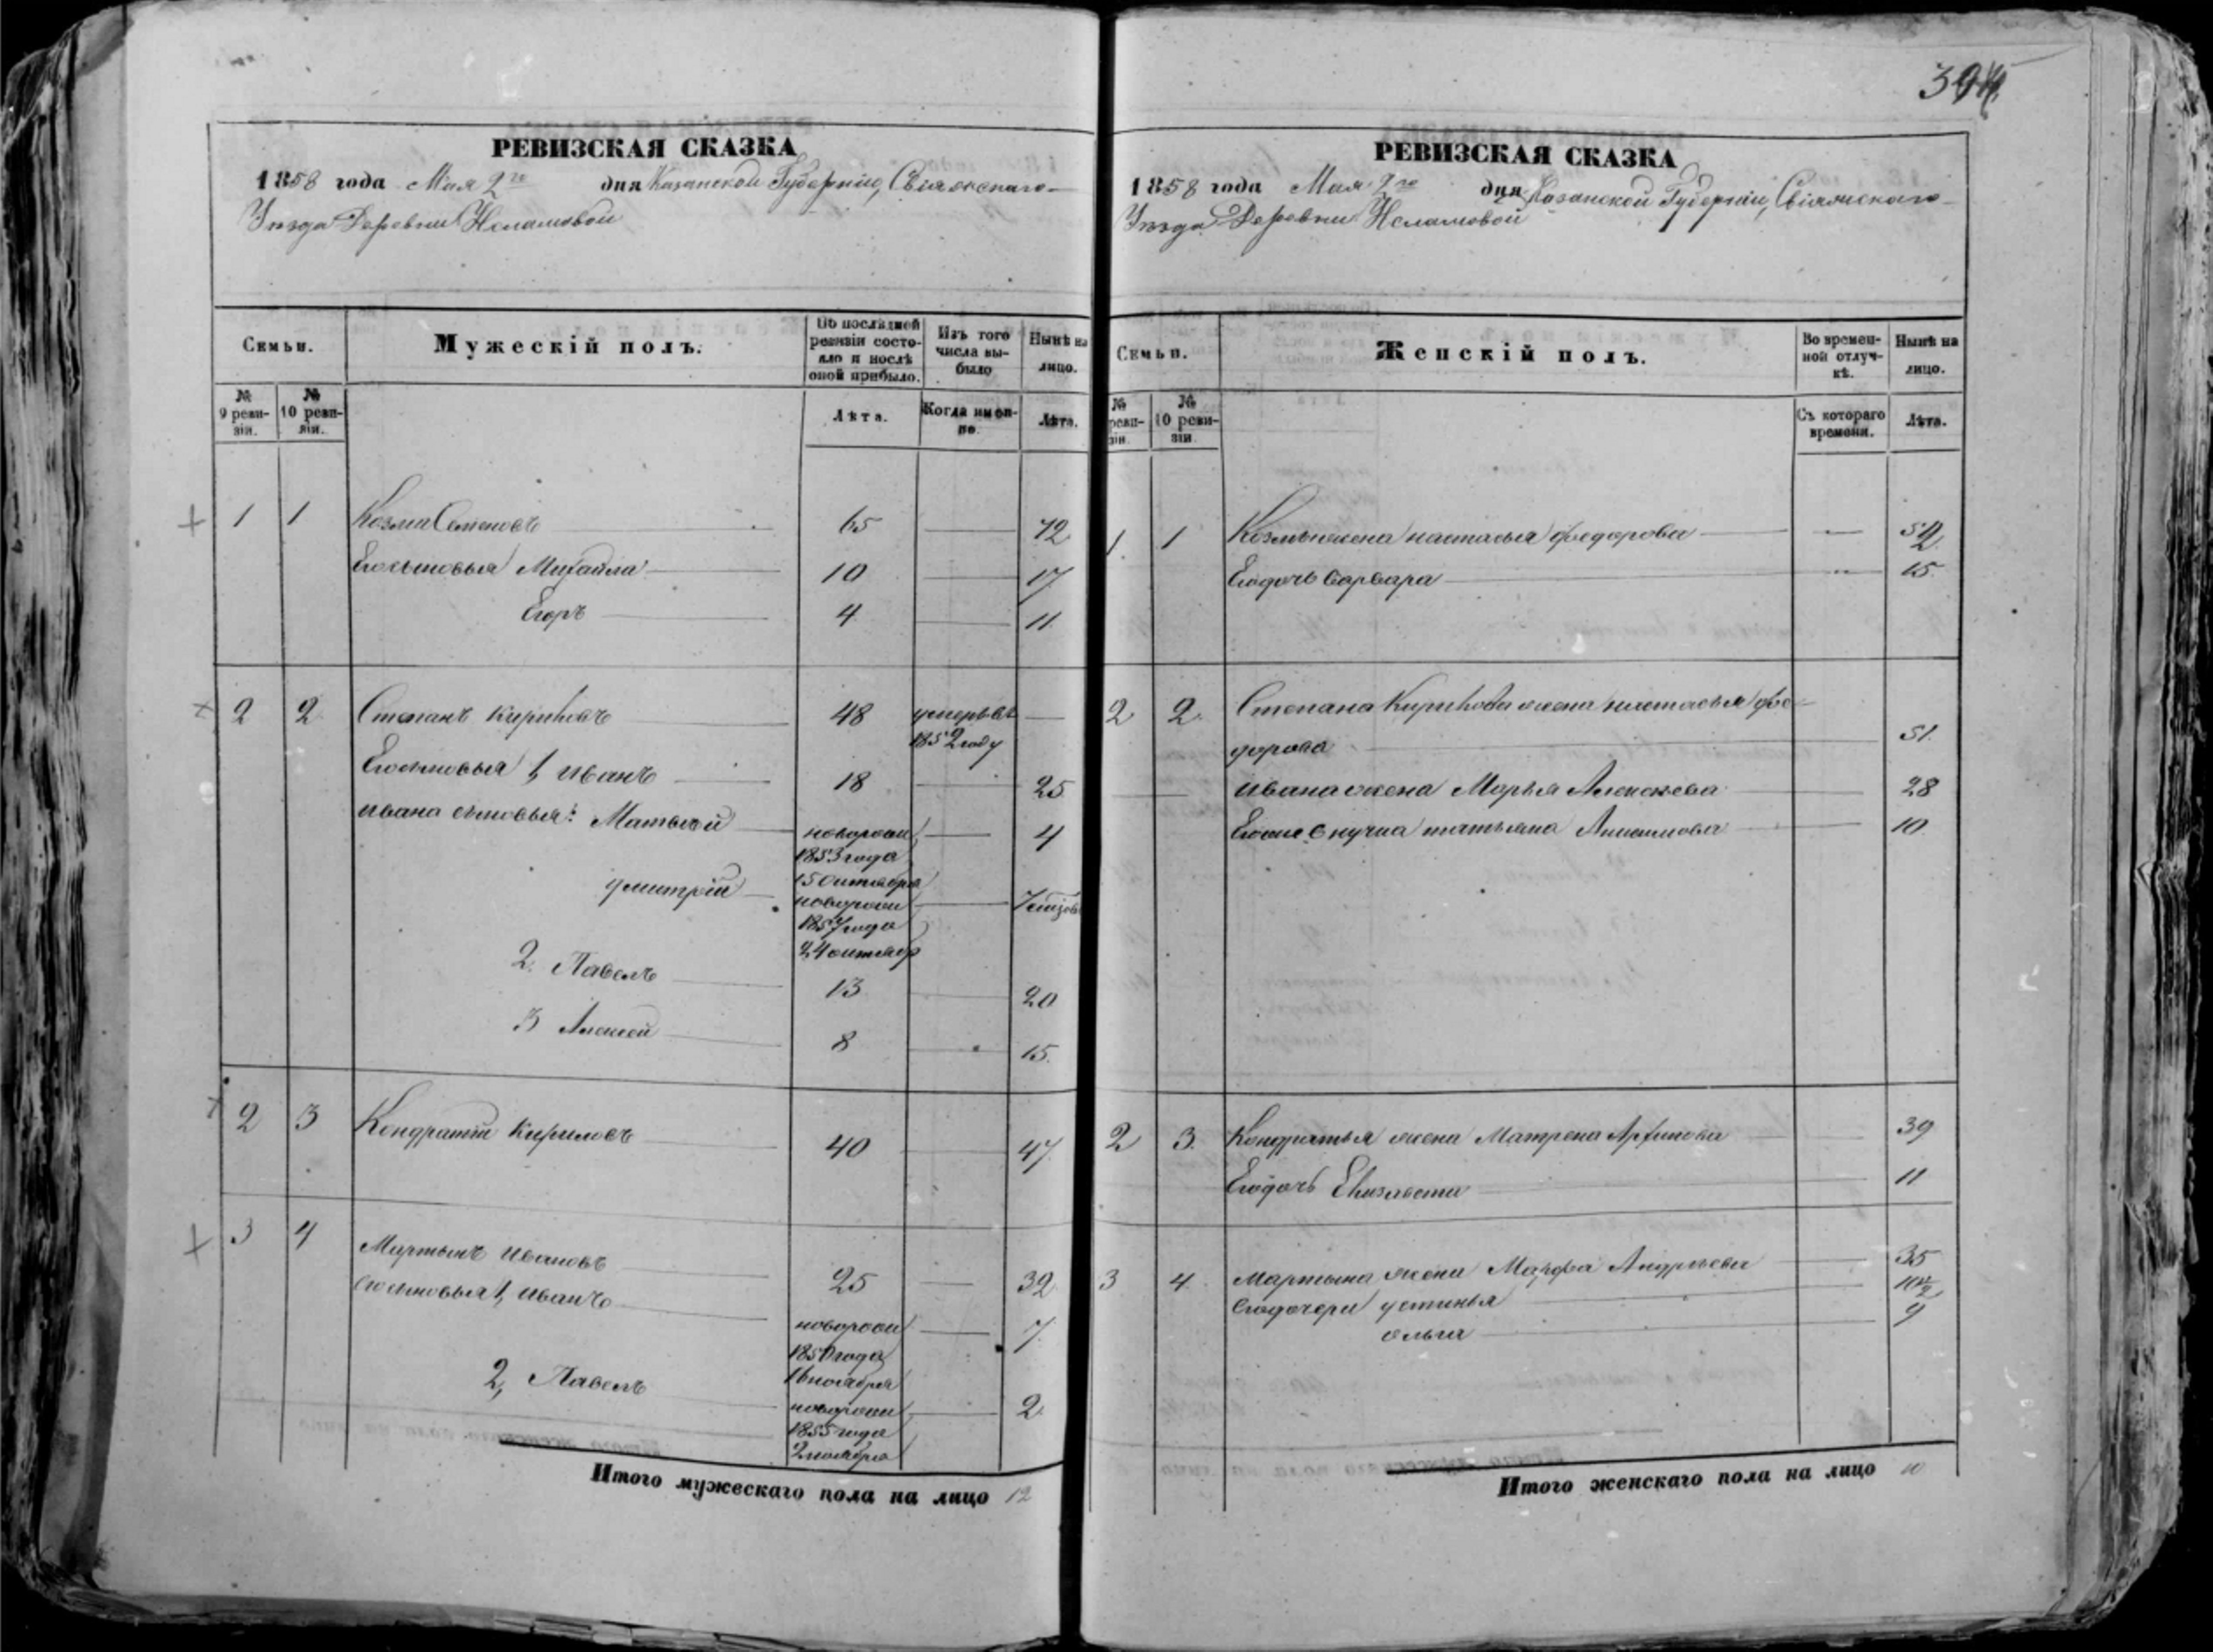 394
РЕВИЗСКАЯ СКАЗКА
1858 года Мая 2го дня Казанской Губерніи, Свіяжскаго
Уезда Деревни Исламовой
Семьи.
Мужескій полъ.
По послѣдней ревизіи состояло и послѣ оной прибыло.
Изъ того числа выбыло
Нынѣ на лицо.
№ 9 ревизіи.
№ 10 ревизіи.
Лѣта.
Когда именно.
Лѣта.
1 1 Козма Семеновъ 65 72
Егосыновья Михайла 10 17
Егоръ 4 11
2 2 Степанъ Кириловъ 48 умеръ въ 1852 году
Егосыновья 1, Иванъ 18 25
Ивана сыновья: Матвей новорожд 1853 года 15 октября 4
Дмитрій новорожд 1857 года 24 октябр
2. Павелъ 13 20
3 Алексей 8 15
2 3 Кондратий Кириловъ 40 47
3 4 Мартынъ Ивановъ 25 32
Егосыновья 1, Иванъ новорожд 1850 года 16 ноября 7
2, Павелъ новорожд 1855 года 2 ноября 2
Итого мужескаго пола на лицо 12
РЕВИЗСКАЯ СКАЗКА
1858 года Мая 2го дня Казанской Губерніи, Свіяжскаго
Уезда Деревни Исламовой
Семьи.
Женскій полъ.
Во временной отлучкѣ.
Нынѣ на лицо.
№ ревизіи
№ 10 ревизіи
Съ котораго времени.
Лѣта.
1 1 Козмы жена Настасья Федорова
Егодочь Варвара 15
2 2 Степана Кирилова жена Настасья Фе
дорова 51
Ивана жена Марья Алексеева 28
внучка Татьяна 10
2 3 Кондратья жена Матрена 39
Егодочь Елизавета 11
3 4 Мартына жена Марфа Андреева 35
Егодочери Устинья
Ольга 9
Итого женскаго пола на лицо 10